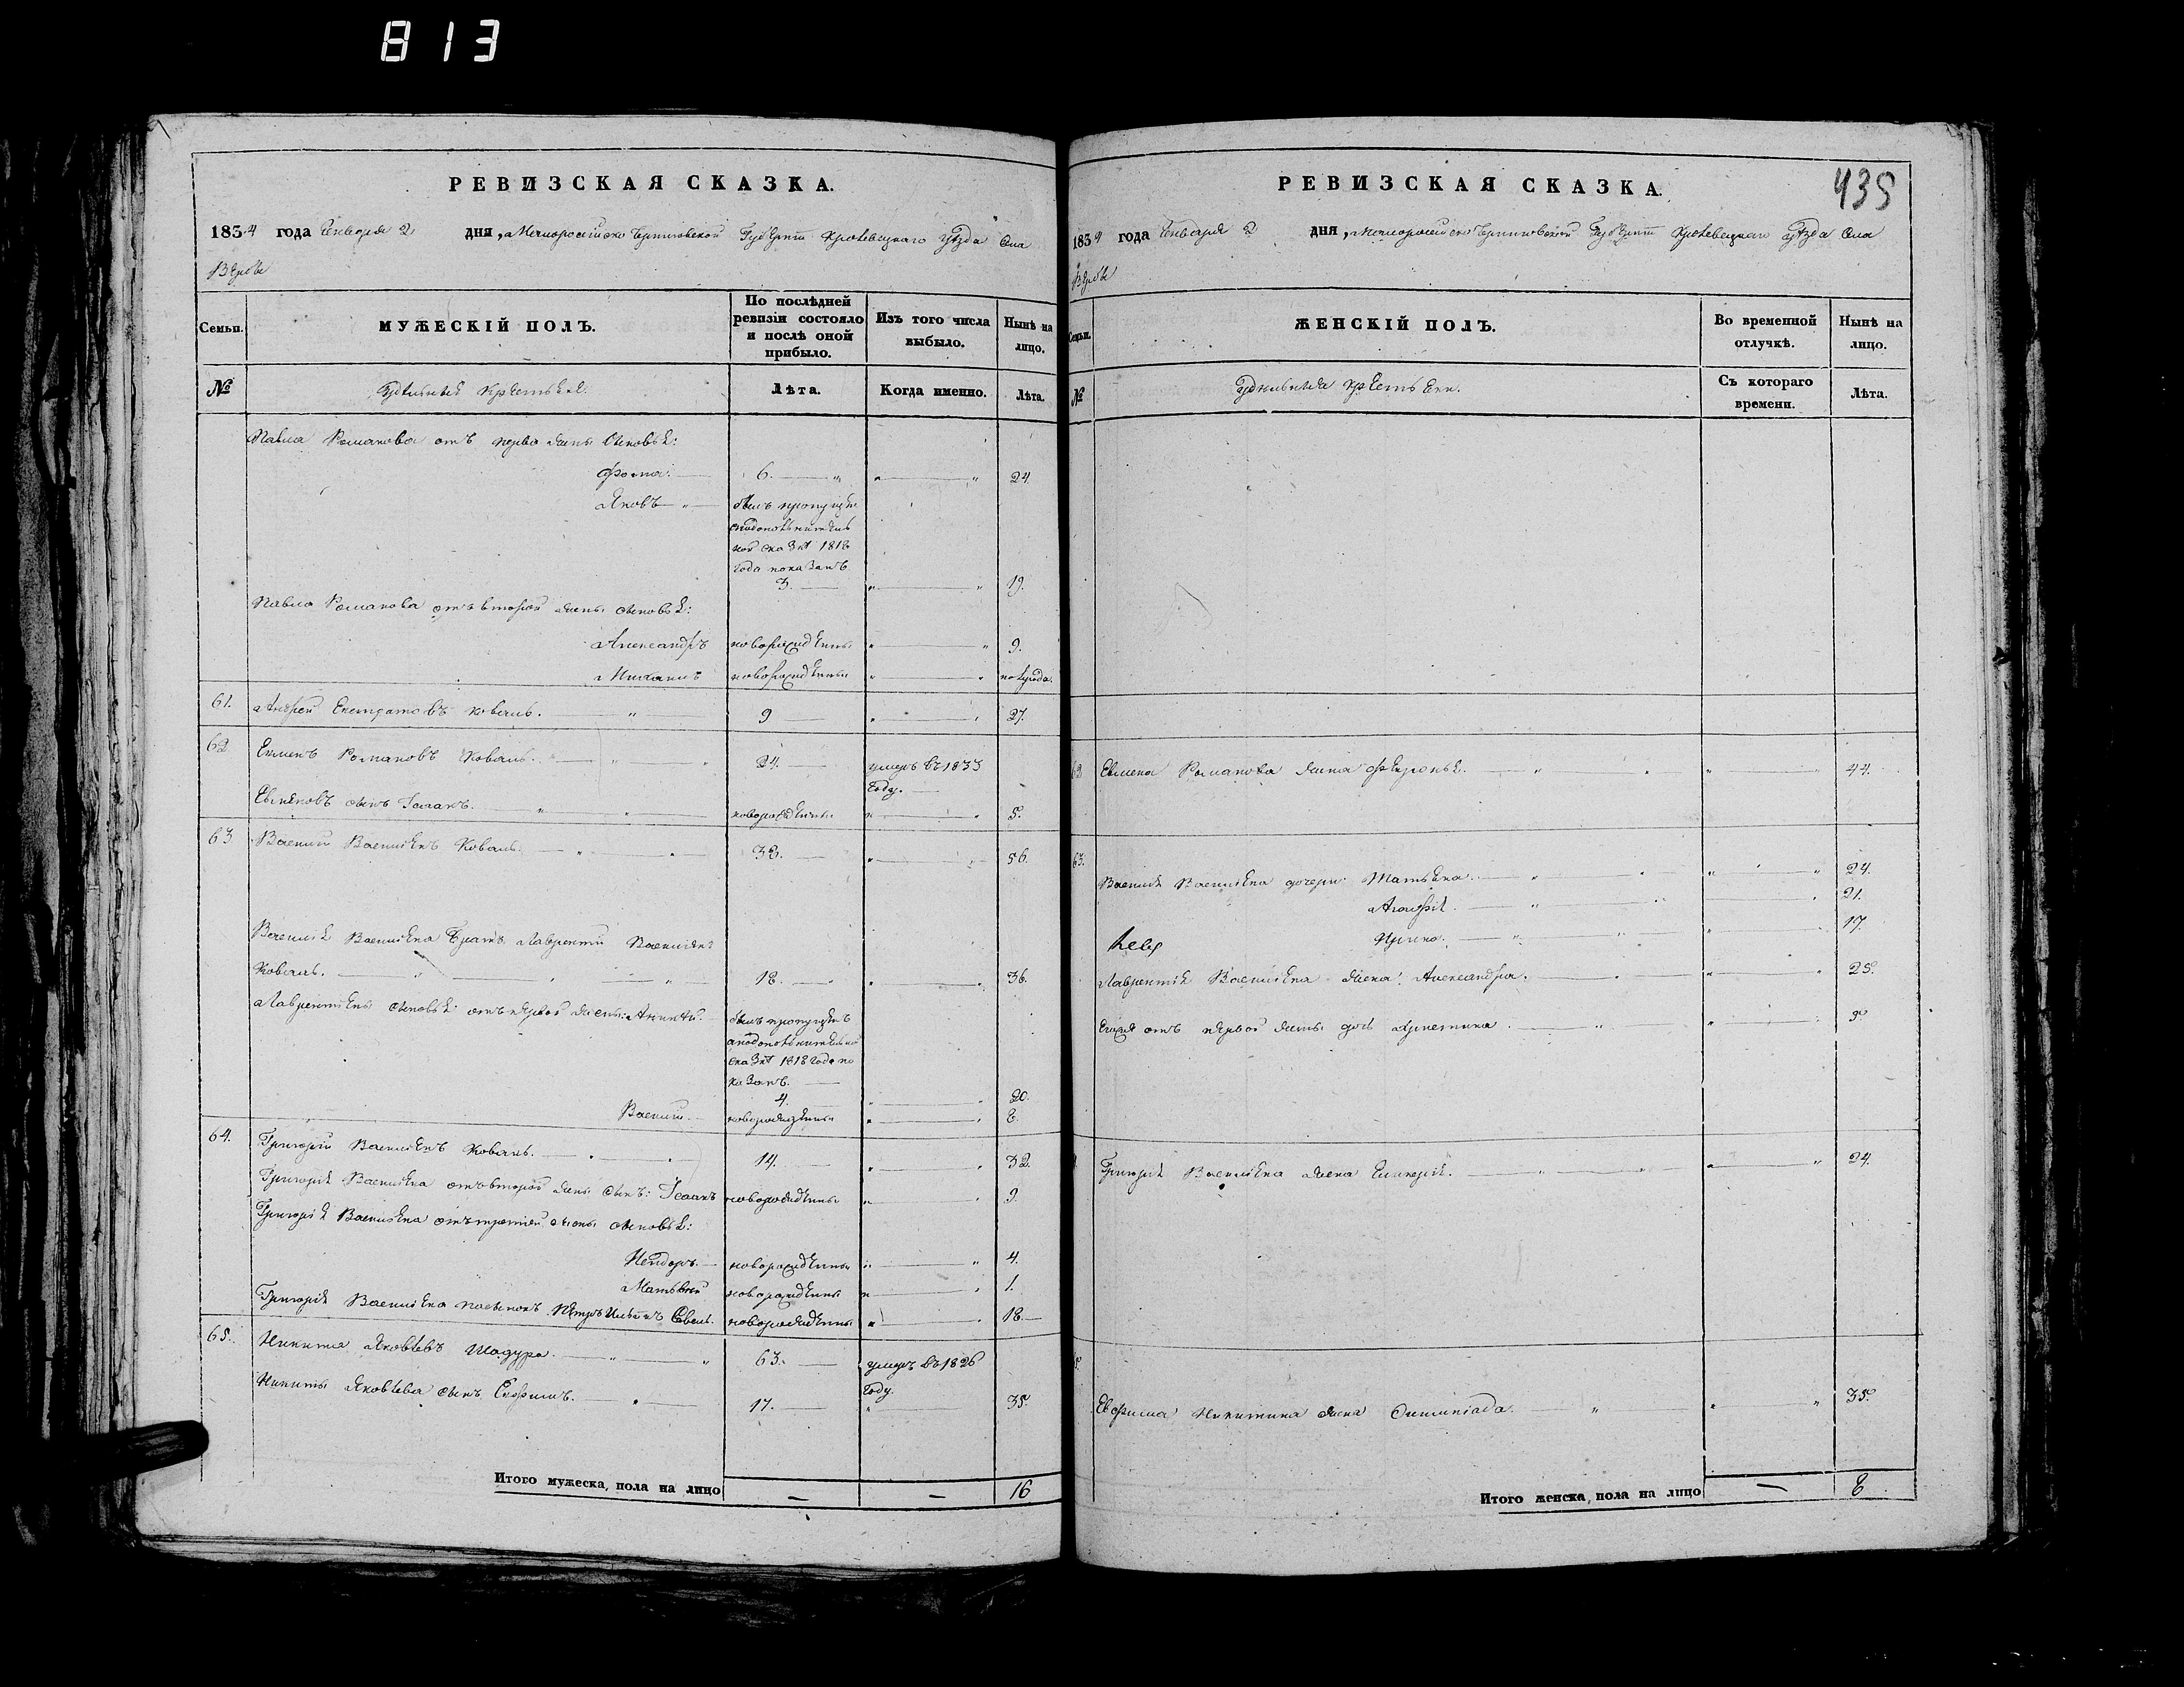 813
РЕВИЗСКАЯ СКАЗКА.
1834 года Генваря 2 дня, Малороссийско Черниговской Губернии Кролевецкаго уѣзда Села
Вербы
Семьи. МУЖЕСКІЙ ПОЛЪ. По послѣдней ревизіи состояло и послѣ оной прибыло. Изъ того числа выбыло. Нынѣ на лицо.
№ Удѣльныя крестьяне. Лѣта. Когда именно. Лѣта.
Павла Романова отъ перва жены сыновья:
Фома. 6. " " " 24.
Яковъ " былъ пропущен
подополнитель
ной сказкѣ 1818
года показанъ
3. " " 19.
Павла Романова отъ второй жены сыновья:
Александръ новорожденны " " 9.
Михаилъ новорожденны " " полгода.
61. Андрей Евстратовъ Коваль. " 9 " " 27.
62. Романовъ Коваль. " " 24. умеръ въ 1833
году.
сынъ Исаакъ. " " новорожденны " " 5.
63 Василий Васильевъ Коваль. " " 38. " " 56.
Василья Васильева братъ Лаврентий Васильевъ
Коваль. " " " 18. " " 36.
Лаврентьевы сыновья отъ первой жены: былъ пропущенъ
сказкѣ 1818 года по
казанъ.
4. " " 20.
Василий. новорожденны " " 8.
64. Григорий Васильевъ Коваль. " " 14. " " 32.
Григорья Васильева отъ второй жены сынъ: Исаакъ новорожденны " " 9.
Григорья Васильева отъ третьей жены сыновья:
новорожденны " " 4.
Матвѣй новорожденны " " 1.
Григорья Васильева пасынокъ Петръ новорожденны " " 18.
65. Никита Яковлевъ Шадура. " " 63. умеръ въ 1826
году.
Никиты Яковлева сынъ Евфимъ. " 17. " 35.
Итого мужеска, пола на лицо — — 16
РЕВИЗСКАЯ СКАЗКА.
435
1834 года Генваря 2 дня, Малороссийско Черниговской Губернии Кролевецкаго уѣзда Села
Вербы
Семьи. ЖЕНСКІЙ ПОЛЪ. Во временной отлучкѣ. Нынѣ на лицо.
№ Удѣльныя крестьянки. Съ котораго времени. Лѣта.
62 Романова жена " " " " 44.
63. Василья Васильева дочери: Татьяна. " " " " 24.
" " " 21.
Ирина. " " " 17.
Лаврентья Васильева жена: Александра. " " " 25.
Егожъ отъ первой жены дочь " " "
Григорья Васильева жена Гликерья. " " " " 24.
Евфима Никитина жена " " " 35.
Итого женска, пола на лицо — 8